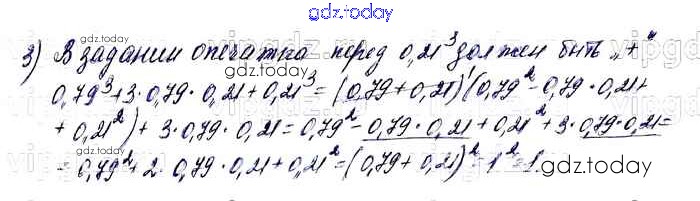 gdz.today
3) В задании опечатка перед 0,21³ должен быть „+"
0,79³+3·0,79·0,21+0,21³=(0,79+0,21)¹(0,79²-0,79·0,21+
+0,21²)+3·0,79·0,21=0,79²-0,79·0,21+0,21²+3·0,79·0,21=
=0,79²+2·0,79·0,21+0,21²=(0,79+0,21)²=1²=1.
gdz.today
gdz.today
gdz.today
gdz.today